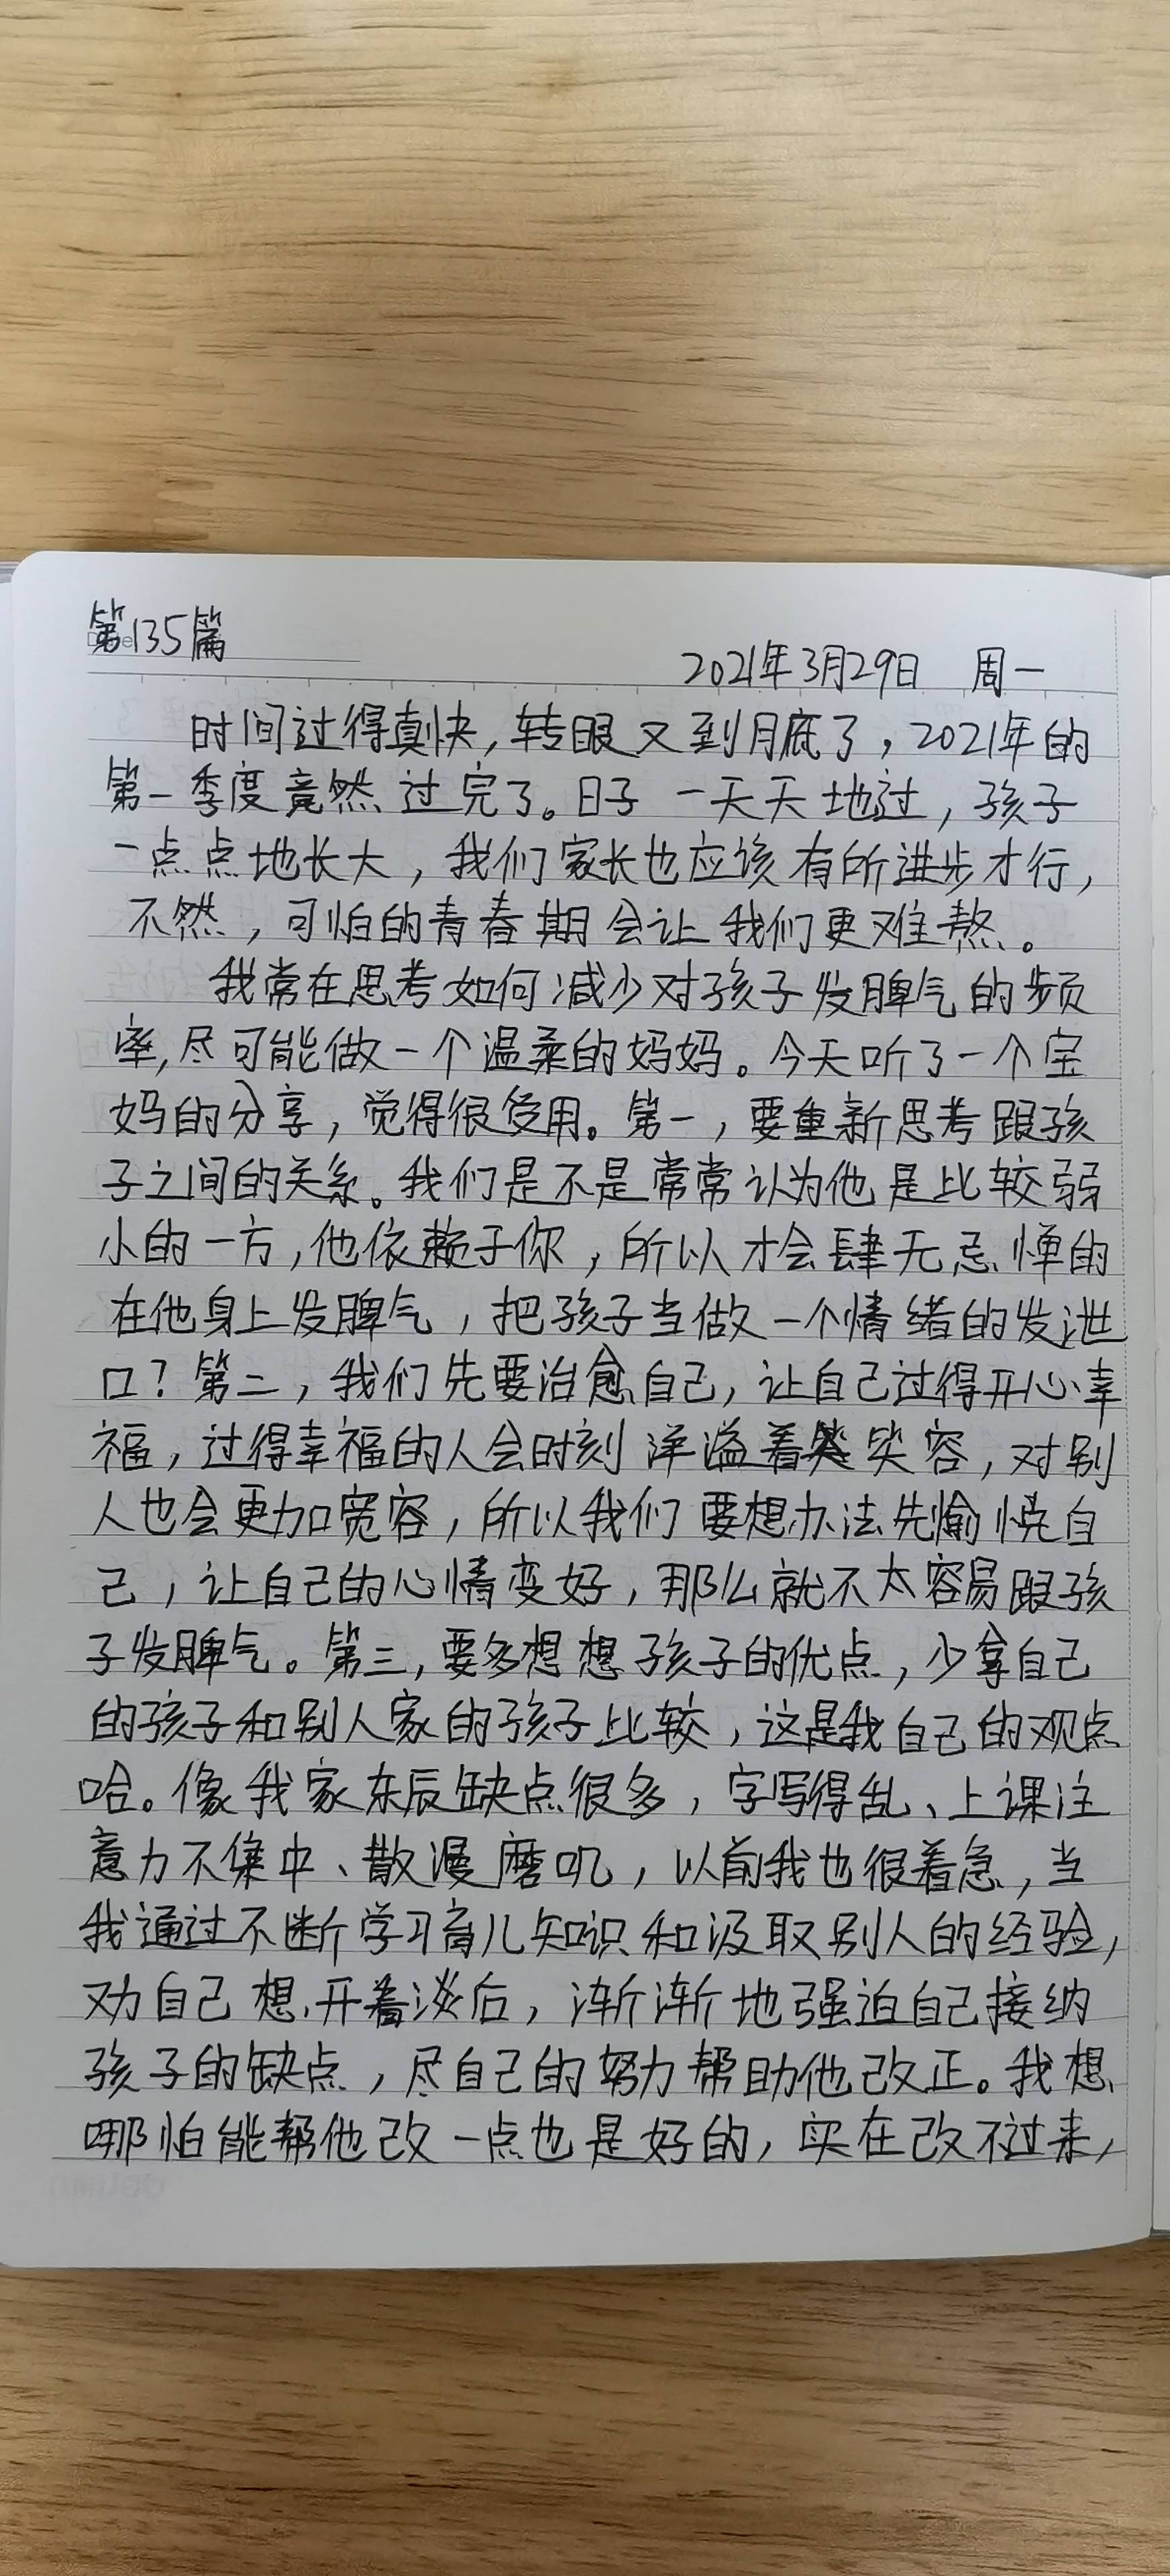 第135篇
2021年3月29日 周一
时间过得真快，转眼又到月底了，2021年的
第一季度竟然过完了。日子一天天地过，孩子
一点点地长大，我们家长也应该有所进步才行，
不然，可怕的青春期会让我们更难熬。
我常在思考如何减少对孩子发脾气的频
率，尽可能做一个温柔的妈妈。今天听了一个宝
妈的分享，觉得很受用。第一，要重新思考跟孩
子之间的关系。我们是不是常常认为他是比较弱
小的一方，他依赖于你，所以才会肆无忌惮的
在他身上发脾气，把孩子当做一个情绪的发泄
口？第二，我们先要治愈自己，让自己过得开心幸
福，过得幸福的人会时刻洋溢着笑容，对别
人也会更加宽容，所以我们要想办法先愉悦自
己，让自己的心情变好，那么就不太容易跟孩
子发脾气。第三，要多想想孩子的优点，少拿自己
的孩子和别人家的孩子比较，这是我自己的观点
哈。像我家东辰缺点很多，字写得乱、上课注
意力不集中、散漫磨叽，以前我也很着急，当
我通过不断学习育儿知识和汲取别人的经验，
劝自己想开看淡后，渐渐地强迫自己接纳
孩子的缺点，尽自己的努力帮助他改正。我想
哪怕能帮他改一点也是好的，实在改不过来，